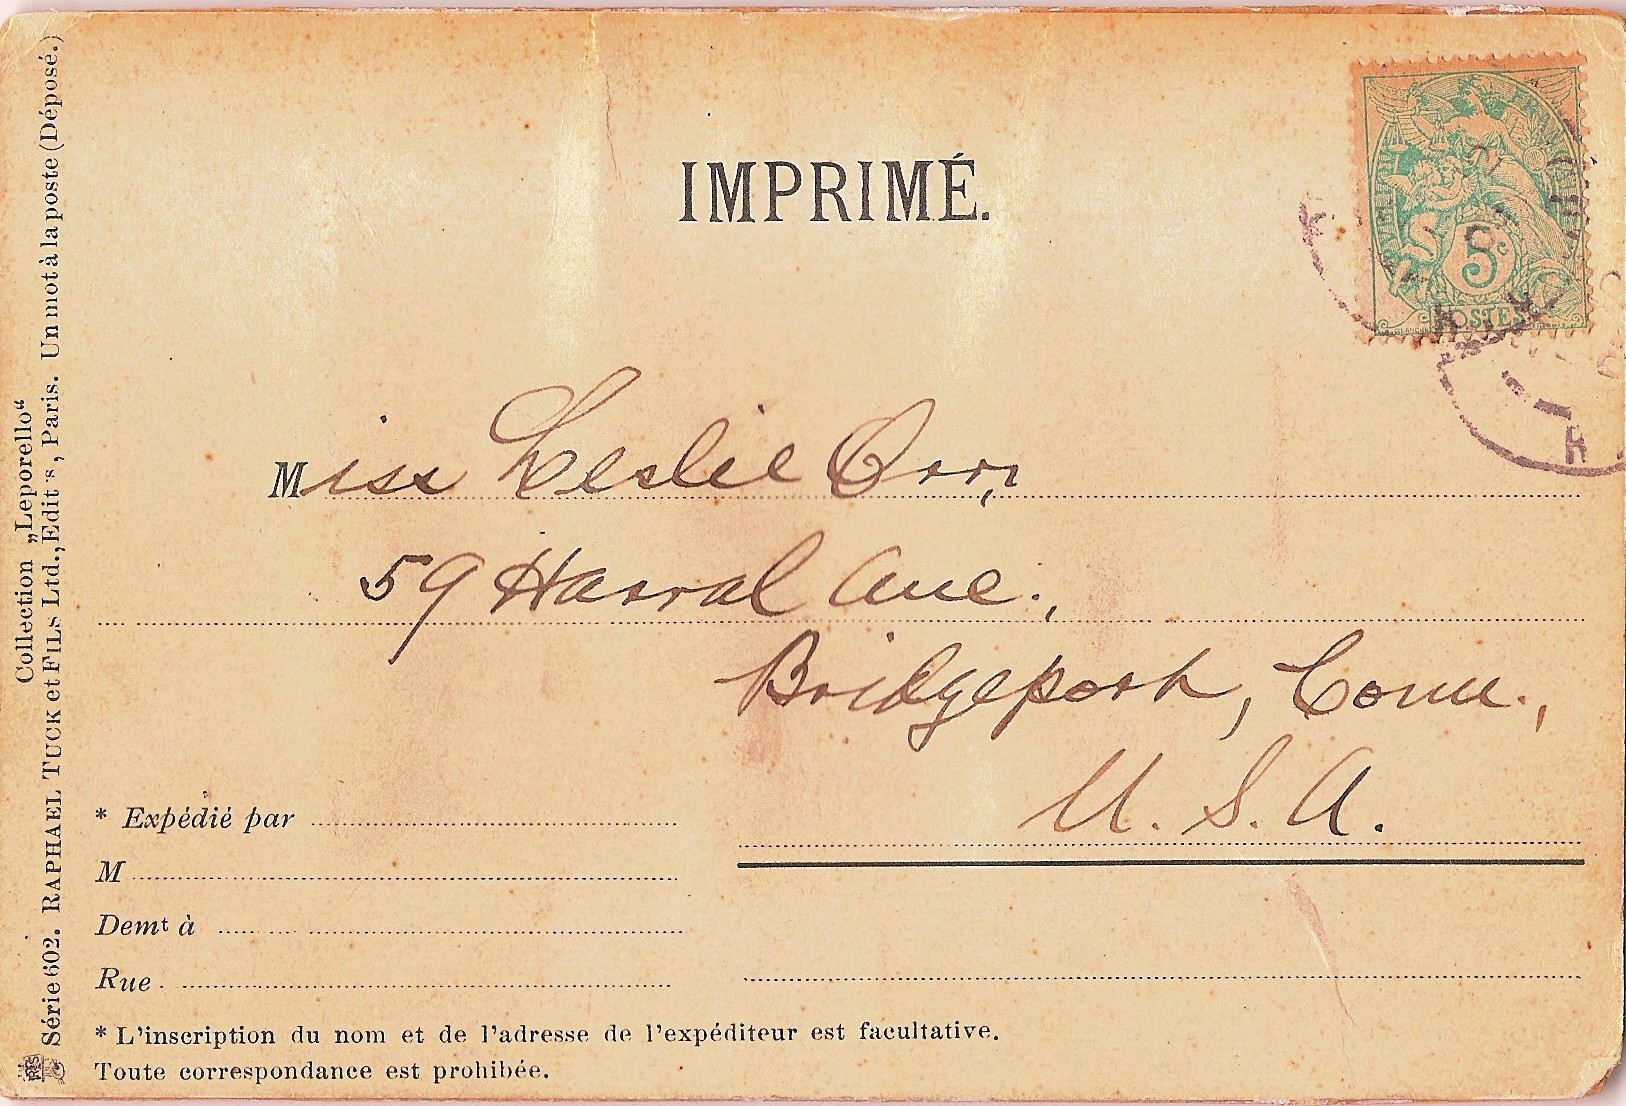 Collection „Leporello“
Série 602. RAPHAEL TUCK et FILS Ltd., Edit's, Paris. Un mot à la poste (Déposé.)
IMPRIMÉ.
5c
POSTES
Miss Leslie Orr,
59 Harral Ave.,
Bridgeport, Conn.,
U. S. A.
* Expédié par
M
Demt à
Rue
* L'inscription du nom et de l'adresse de l'expéditeur est facultative.
Toute correspondance est prohibée.